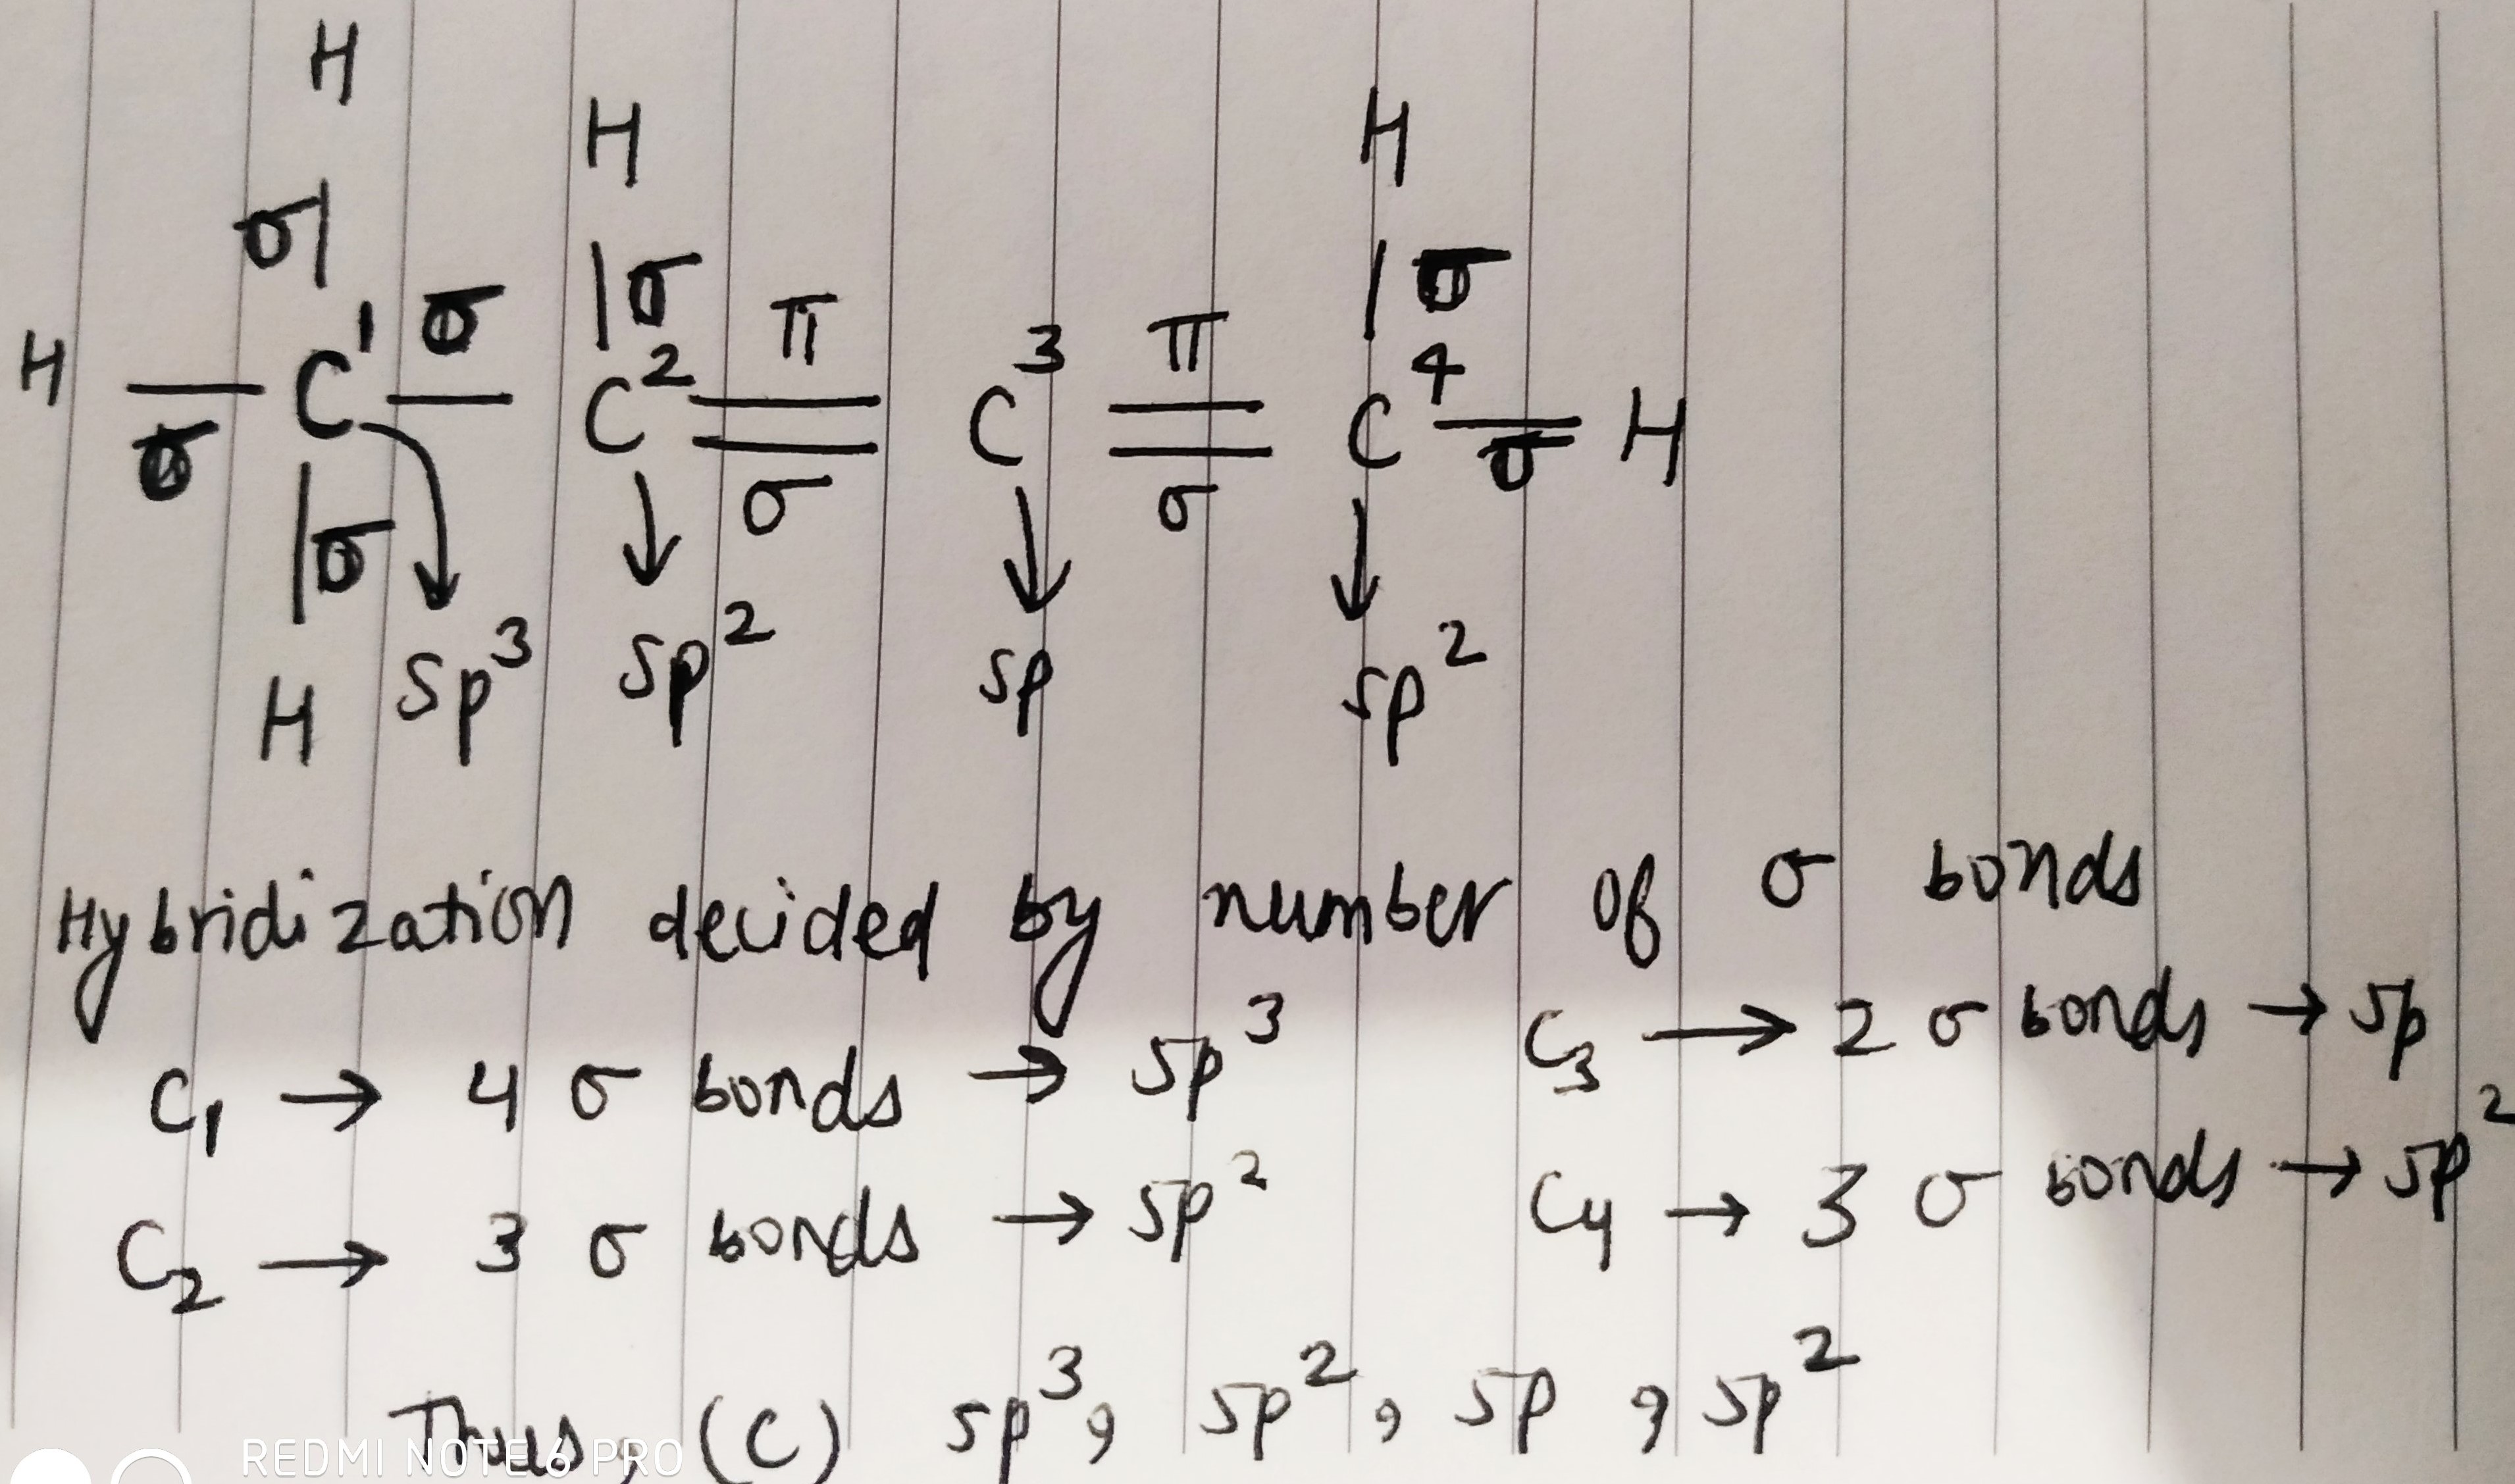 H
H H
σ σ σ
H C¹ σ C² π C³ π C⁴ H
σ σ σ σ
σ
H sp³ sp² sp sp²
Hybridization decided by number of σ bonds
C₁ → 4 σ bonds → sp³
C₂ → 3 σ bonds → sp²
C₃ → 2 σ bonds → sp
C₄ → 3 σ bonds → sp²
Thus, (C) sp³, sp², sp, sp²
REDMI NOTE 6 PRO